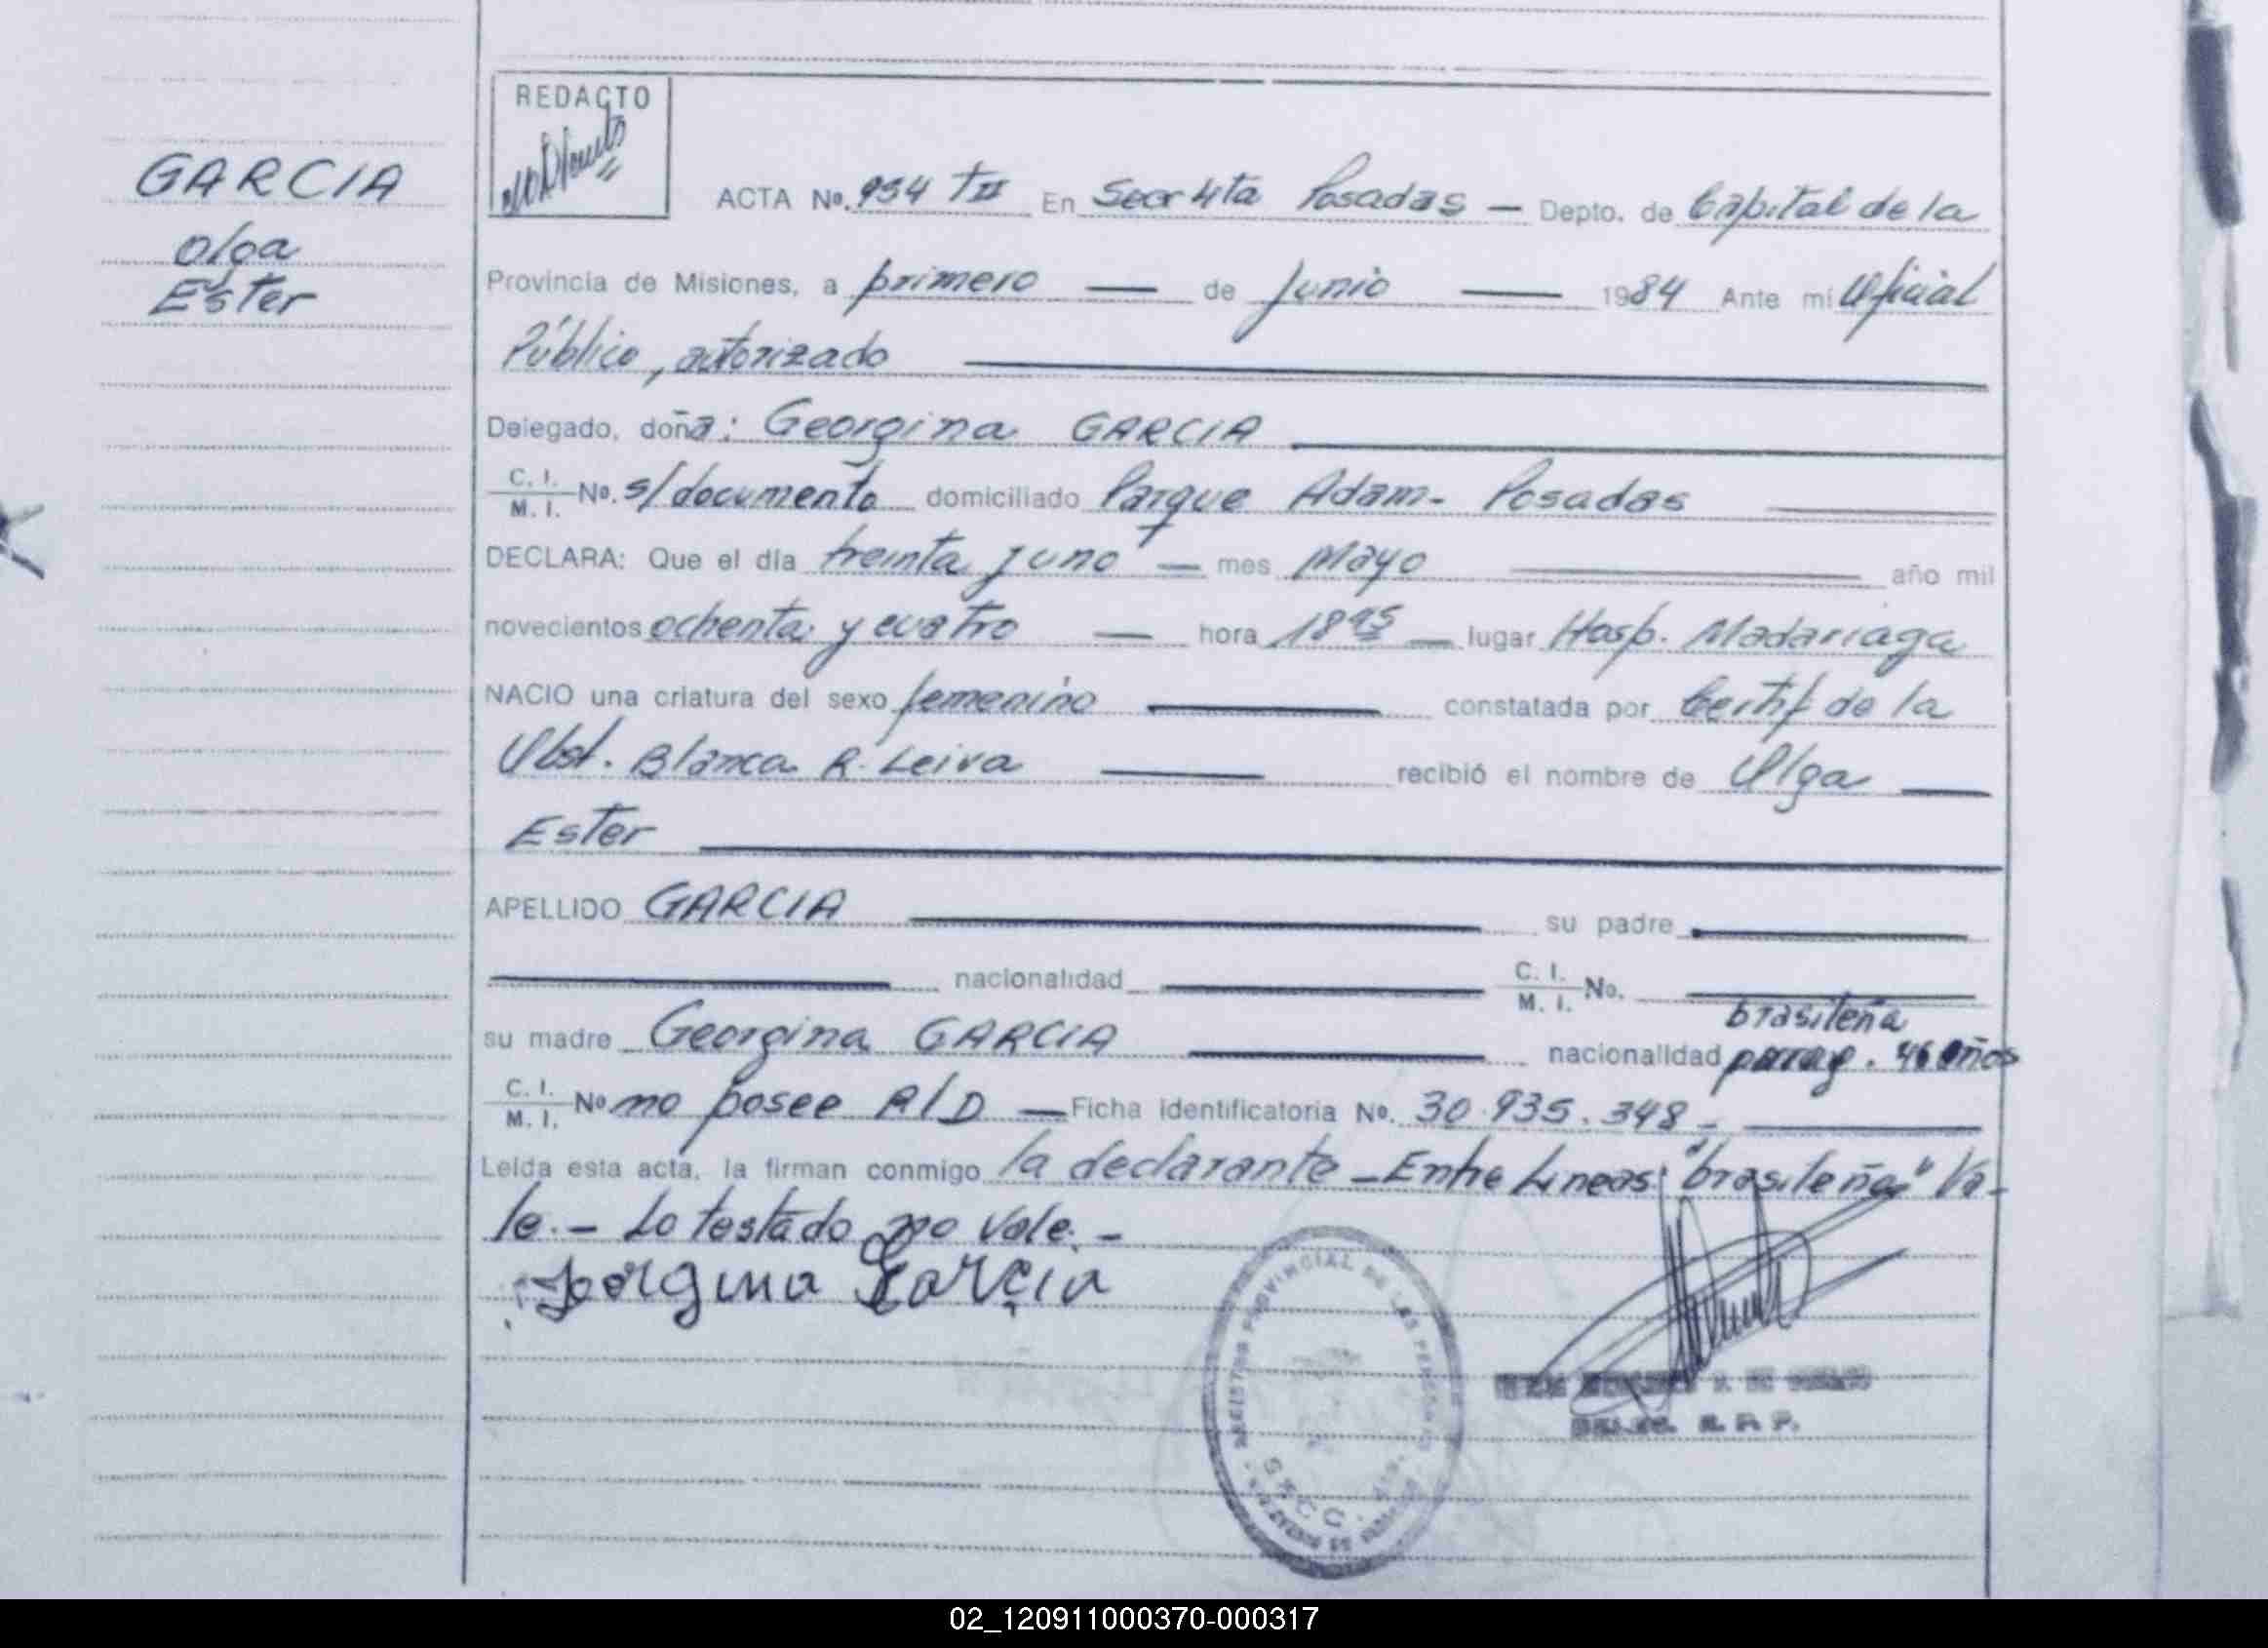 REDACTO
GARCIA
Olga
Ester
ACTA No. 934 TII En Secc 4ta Posadas — Depto. de Capital de la
Provincia de Misiones, a primero — de Junio — 1984 Ante mi Oficial
Público, autorizado
Delegado, doña: Georgina GARCIA
C. I. / M. I. No. s/documento domiciliado Parque Adam. Posadas
DECLARA: Que el día treinta y uno — mes Mayo año mil
novecientos ochenta y cuatro — hora lugar Hosp. Madariaga
NACIO una criatura del sexo femenino constatada por Certif de la
Obst. Blanca R. Leiva recibió el nombre de Olga
Ester
APELLIDO GARCIA su padre
nacionalidad C. I. / M. I. No.
brasileña
su madre Georgina GARCIA nacionalidad parag. 46 años
C. I. / M. I. No no posee R/D — Ficha identificatoria No. 30.935.348 -
Leida esta acta, la firman conmigo la declarante - Entre Lineas: "brasileña" Va-
le. - Lo testado no vale. -
Georgina Garcia
REGISTRO PROVINCIAL DE LAS PERSONAS
SECC. 4ta.
DELEG. R. P. P.
02_120911000370-000317